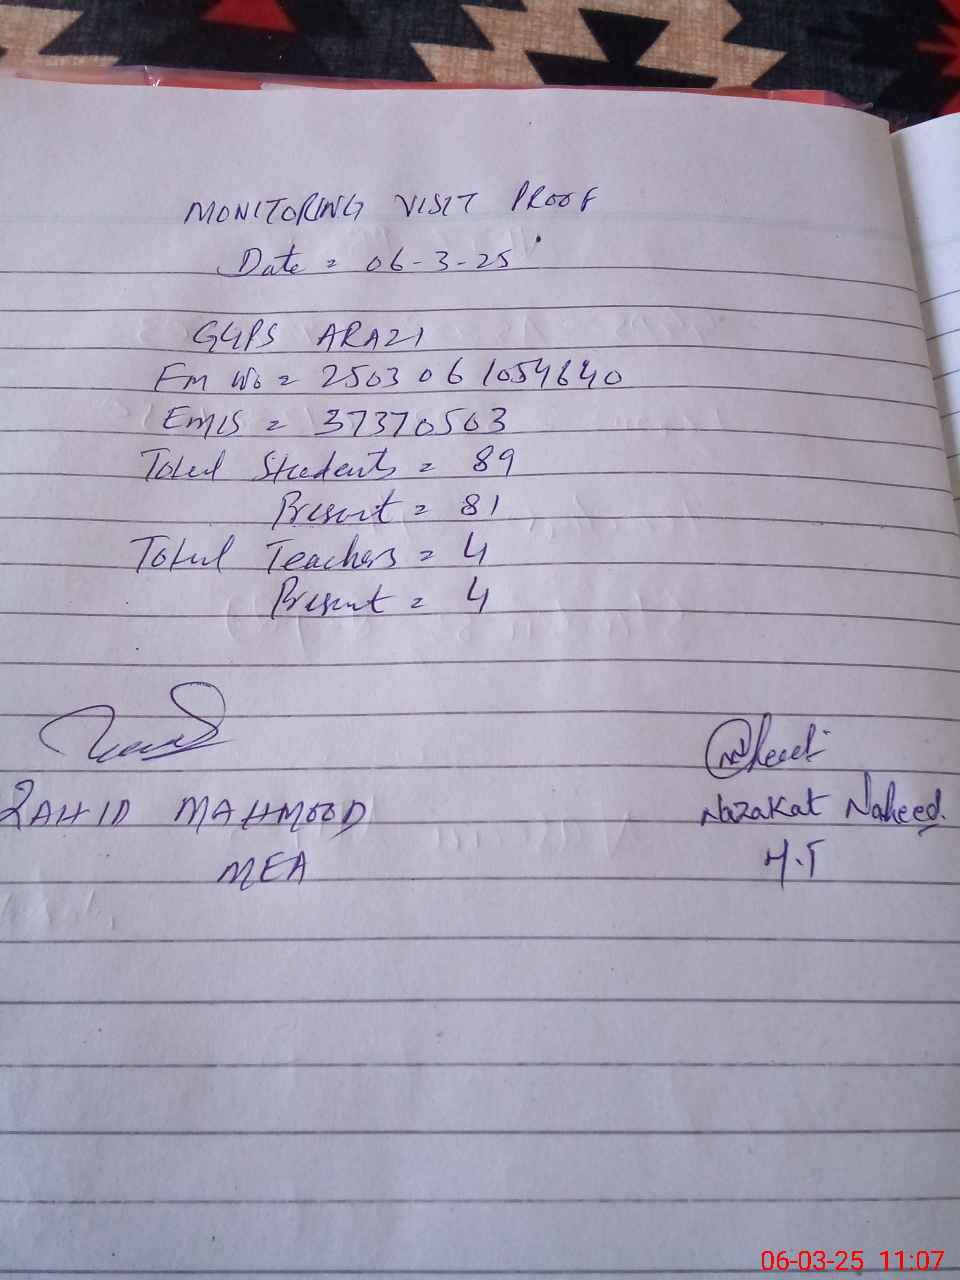 MONITORING VISIT PROOF
Date = 06-3-25
GGPS ARAZI
Fm No = 2503061054640
EMIS = 37370563
Total Students = 89
Present = 81
Total Teachers = 4
Present = 4
ZAHID MAHMOOD
Nazakat Naheed.
MEA
H.T
06-03-25 11:07